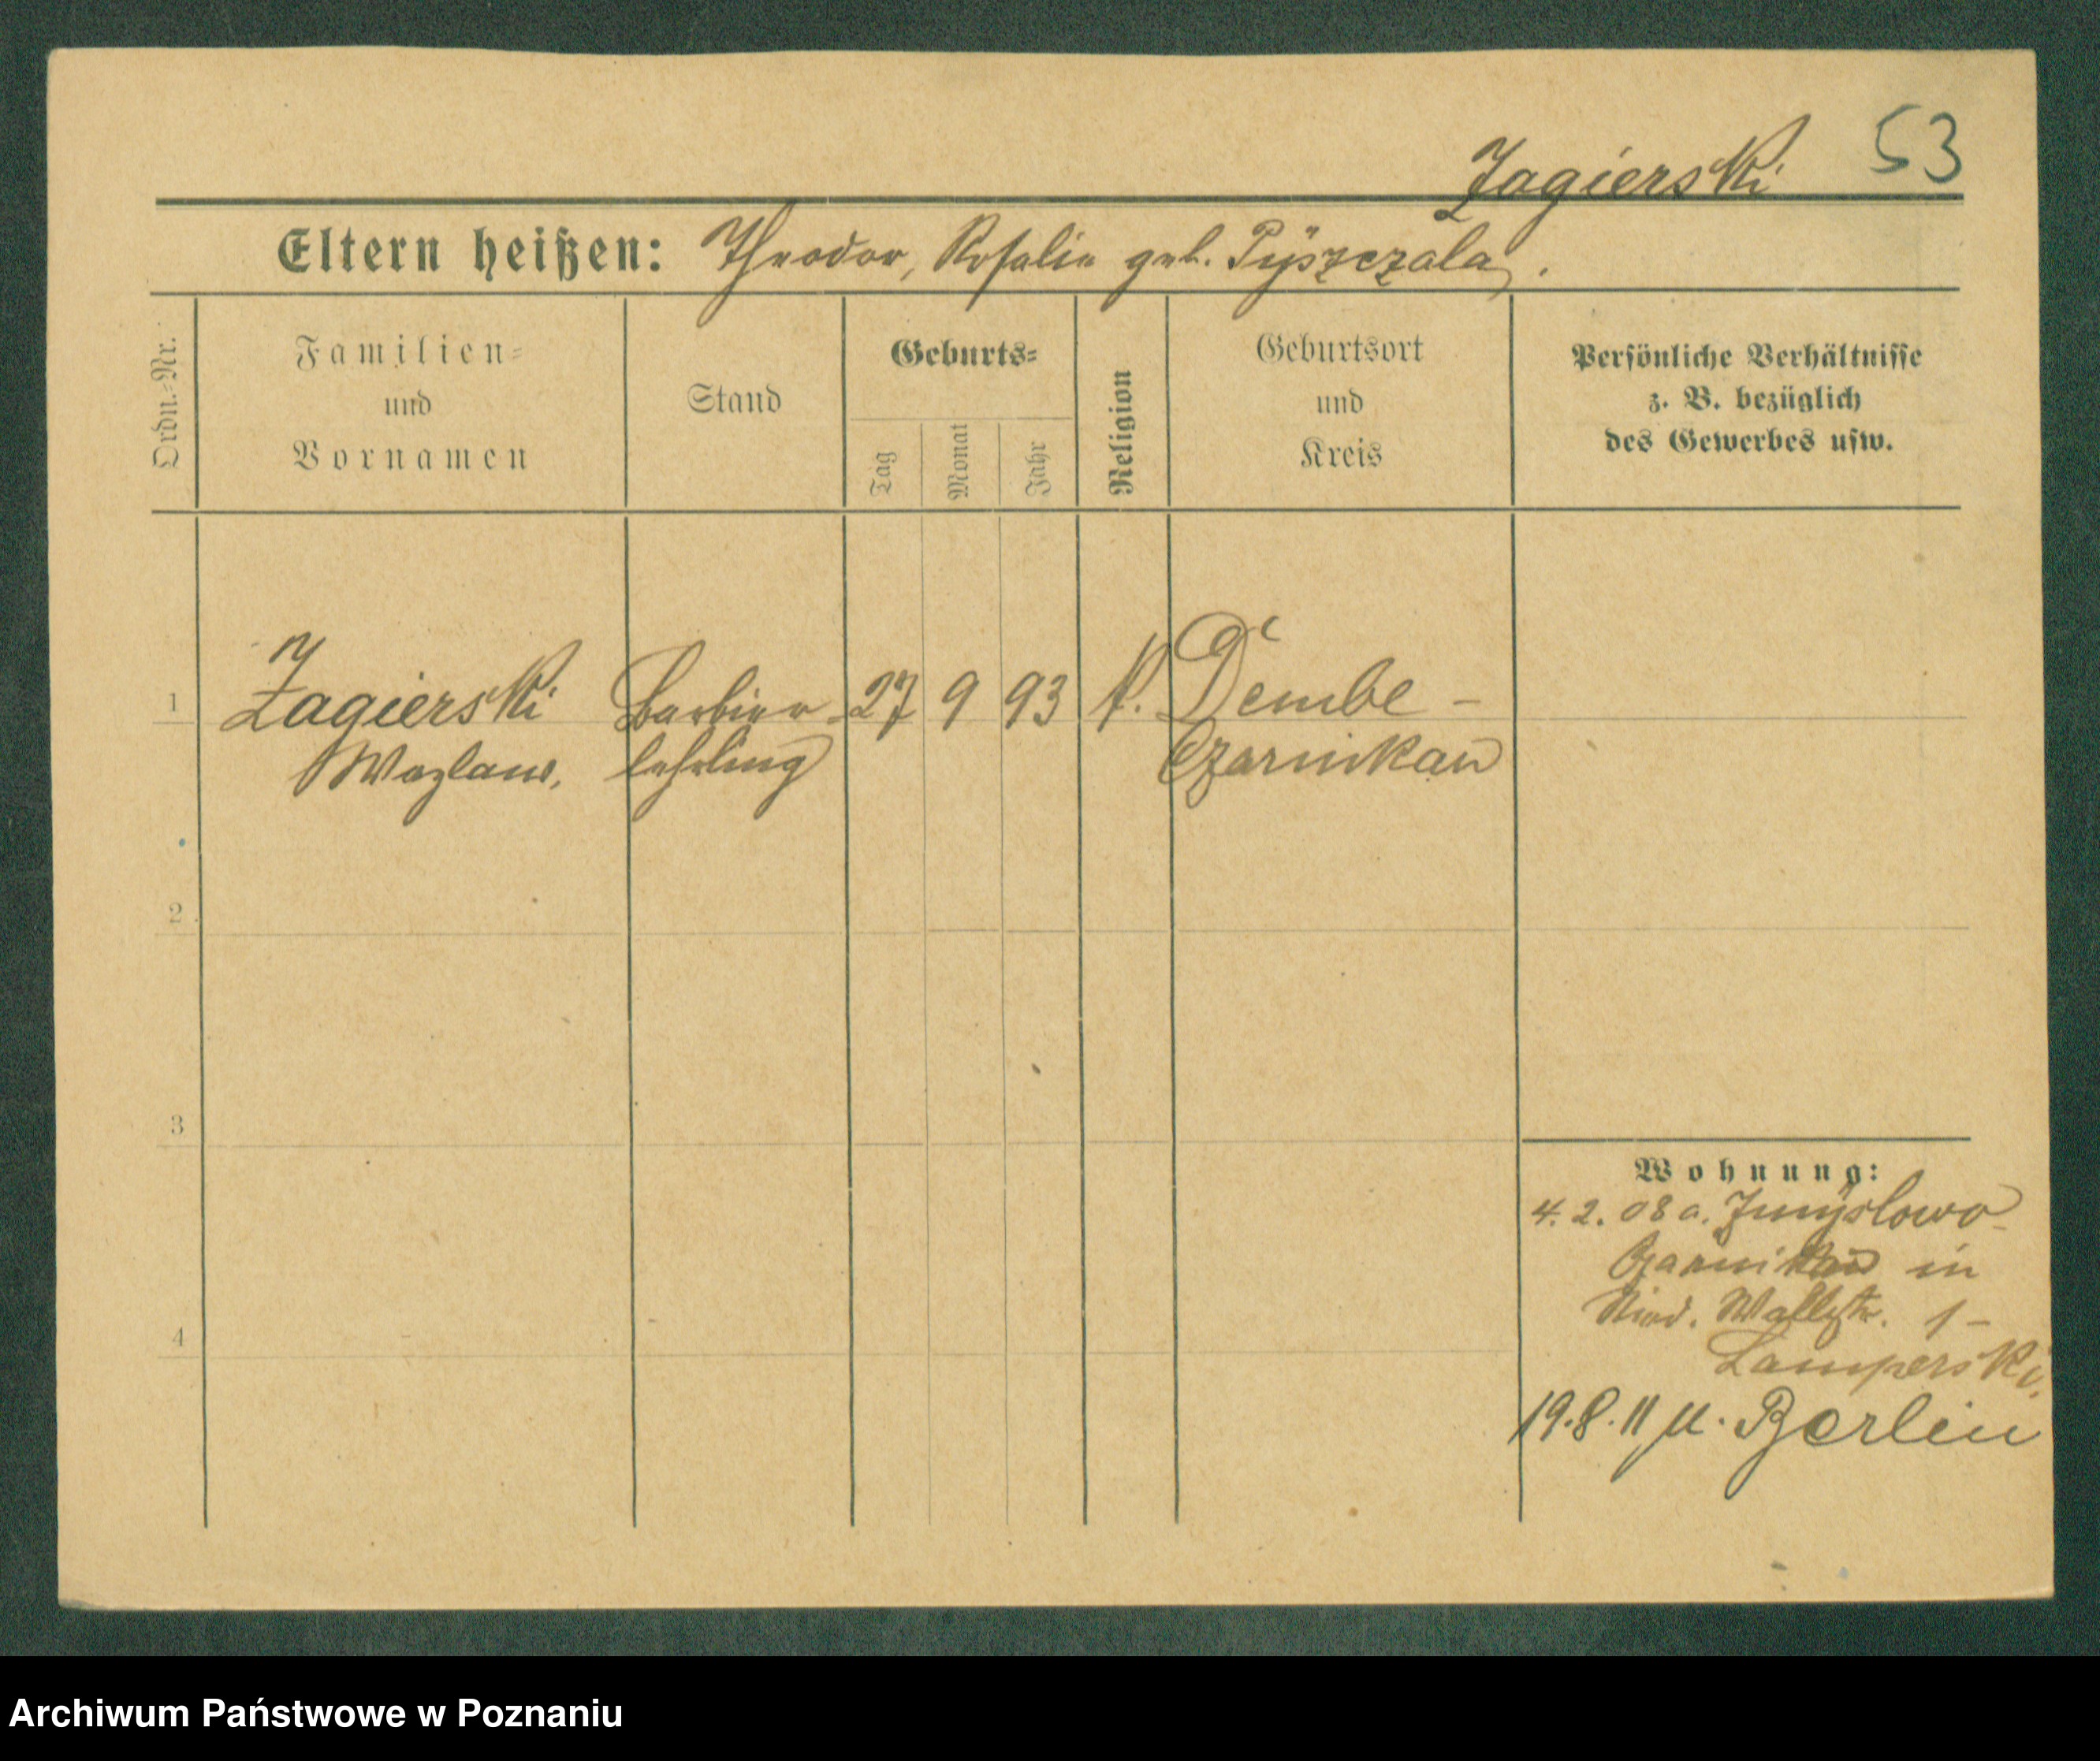 Zagierski 53
Eltern heißen: Theodor, Rosalie geb. Pÿszczala.
Ordn.-Nr.
Familien-
und
Vornamen
Stand
Geburts-
Tag
Monat
Jahr
Religion
Geburtsort
und
Kreis
Persönliche Verhältnisse
z. B. bezüglich
des Gewerbes usw.
1 Zagierski Barbier- 27 9 93 k. Dembe -
Wazlaw. lehrling Czarnikau
2
3
4
Wohnung:
4. 2. 08 a.
Czarnikau in
Wallstr. 1 -
Lamperski.
19. 8. 11 u. Berlin
Archiwum Państwowe w Poznaniu